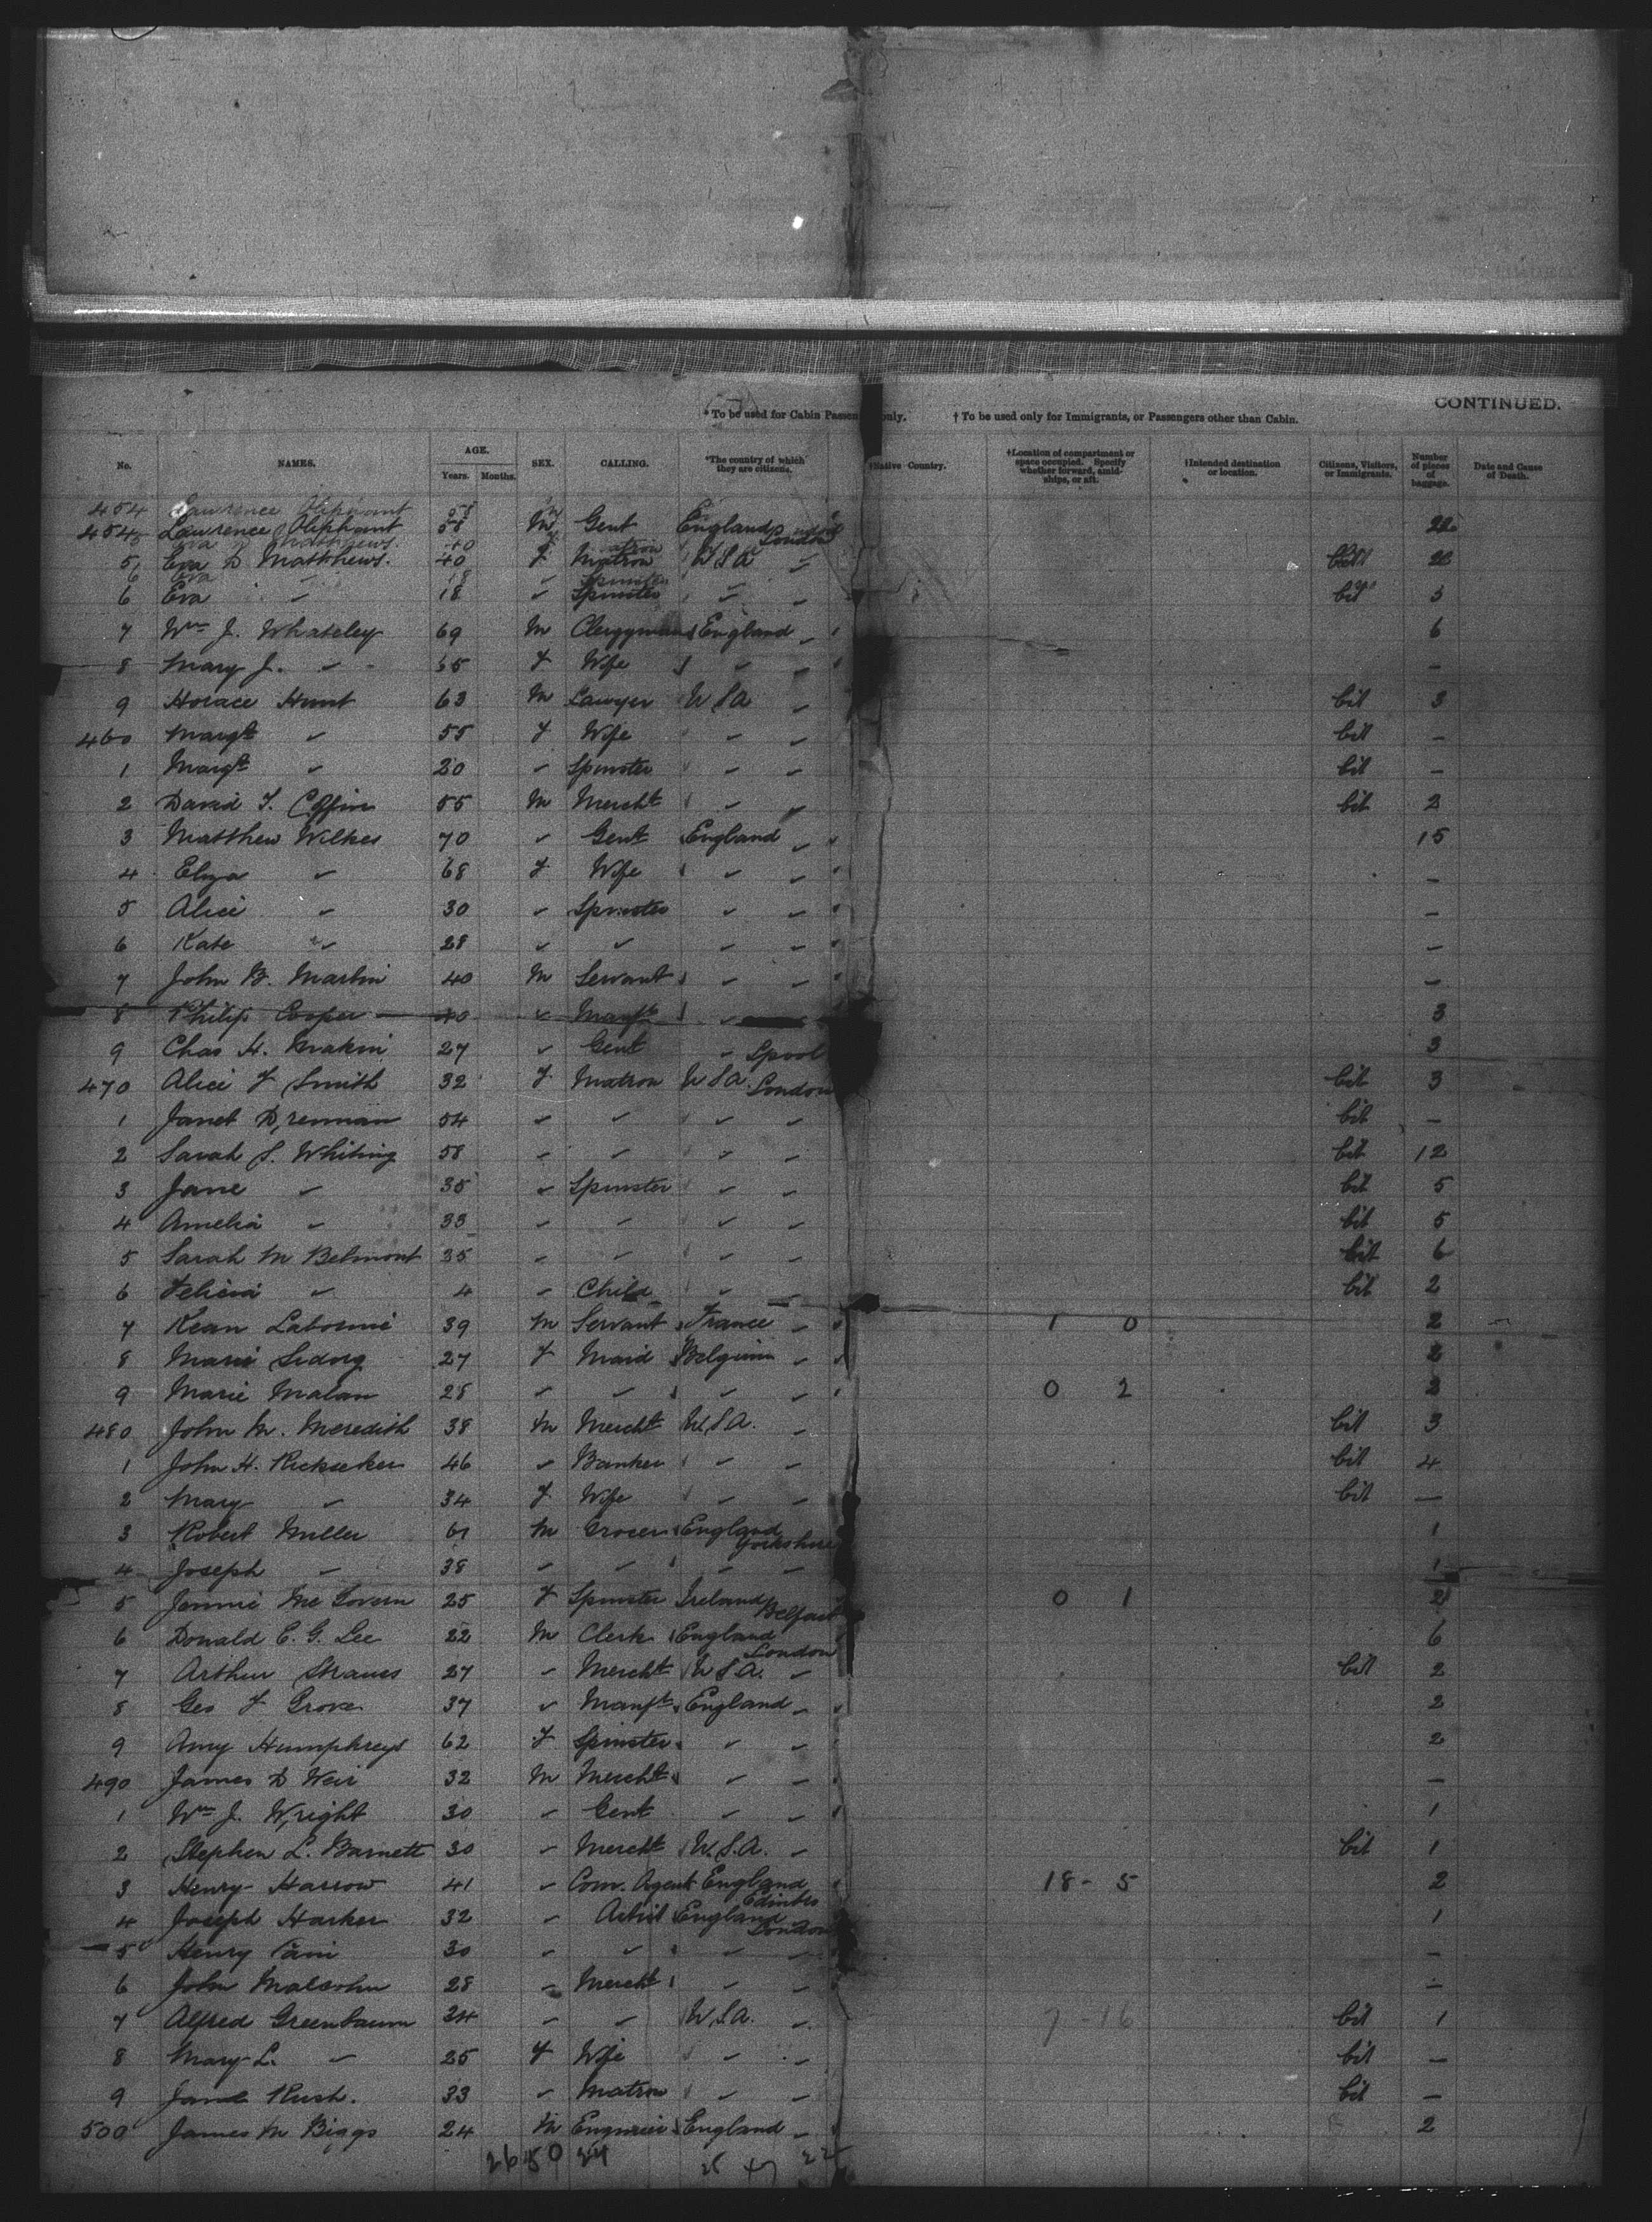 CONTINUED.
* To be used for Cabin Passen only. † To be used only for Immigrants, or Passengers other than Cabin.
No. NAMES. AGE. Years. Months. SEX. CALLING. *The country of which they are citizens. †Native Country. †Location of compartment or space occupied. Specify whether forward, amidships, or aft. †Intended destination or location. Citizens, Visitors, or Immigrants. Number of pieces of baggage. Date and Cause of Death.
454 Lawrence Oliphant 58
454 Lawrence Oliphant 58 M Gent England London 22
5 Eva D Matthews. 40 F Matron U S A " Cit
6 Eva " 18 " Spinster " " Cit 5
7 Wm J. Whateley 69 M Clergyman England " 6
8 Mary J. " 65 F Wife " " —
9 Horace Hunt 63 M Lawyer U S A " Cit 3
460 Margt " 55 F Wife " " Cit —
1 Margt " 20 " Spinster " " Cit —
2 David F. Coffin 55 M Mercht " " Cit 2
3 Matthew Wilkes 70 " Gent England " 15
4 Eliza " 68 F Wife " " —
5 Alice " 30 " Spinster " " —
6 Kate " 28 " " " " —
7 John B. Martin 40 M Servant " " —
8 Philip Cooper 40 " Manftr " 3
9 Chas H. Makin 27 " Gent " Lpool 3
470 Alice F Smith 32 F Matron U S A. London Cit 3
1 Janet Drennan 54 " " " " Cit —
2 Sarah S. Whiting 58 " " " " Cit 12
3 Jane " 35 " Spinster " " Cit 5
4 Amelia " 33 " " " " Cit 5
5 Sarah M Belmont 35 " " " " Cit 6
6 Felicia " 4 " Child " " Cit 2
7 Kean 39 M Servant France " 1 0 2
8 Marie 27 F Maid Belgium " 2
9 Marie Malan 28 " " " " 0 2 2
480 John M. Meredith 38 M Mercht U.S.A. " Cit 3
1 John H. Ricksecker 46 " Banker " " Cit 4
2 Mary " 34 F Wife " " Cit —
3 Robert Miller 61 M Grocer England Yorkshire 1
4 Joseph " 38 " " " " 1
5 Jennie Mc Govern 25 F Spinster Ireland Belfast 0 1 2
6 Donald C. G. Lee 22 M Clerk England London 6
7 Arthur Strauss 27 " Mercht U S A. " Cit 2
8 Geo F Grove 37 " Manftr England " 2
9 Amy Humphreys 62 F Spinster " " 2
490 James D Weir 32 M Mercht " " —
1 Wm J. Wright 30 " Gent " " 1
2 Stephen L. Barnett 30 " Mercht U.S.A. " Cit 1
3 Henry Harrow 41 " Com. Agent England Edinbro 18 - 5 2
4 Joseph Harker 32 " Artist England London 1
5 Henry 30 " " " " —
6 John Malcolm 28 " Mercht " " —
7 Alfred Greenbaum 34 " " U.S.A. " 7 - 16 Cit 1
8 Mary L. " 25 F Wife " " Cit —
9 Rush. 33 " Matron " " Cit —
500 James M Biggs 24 M Engineer England " 2
26 50 24